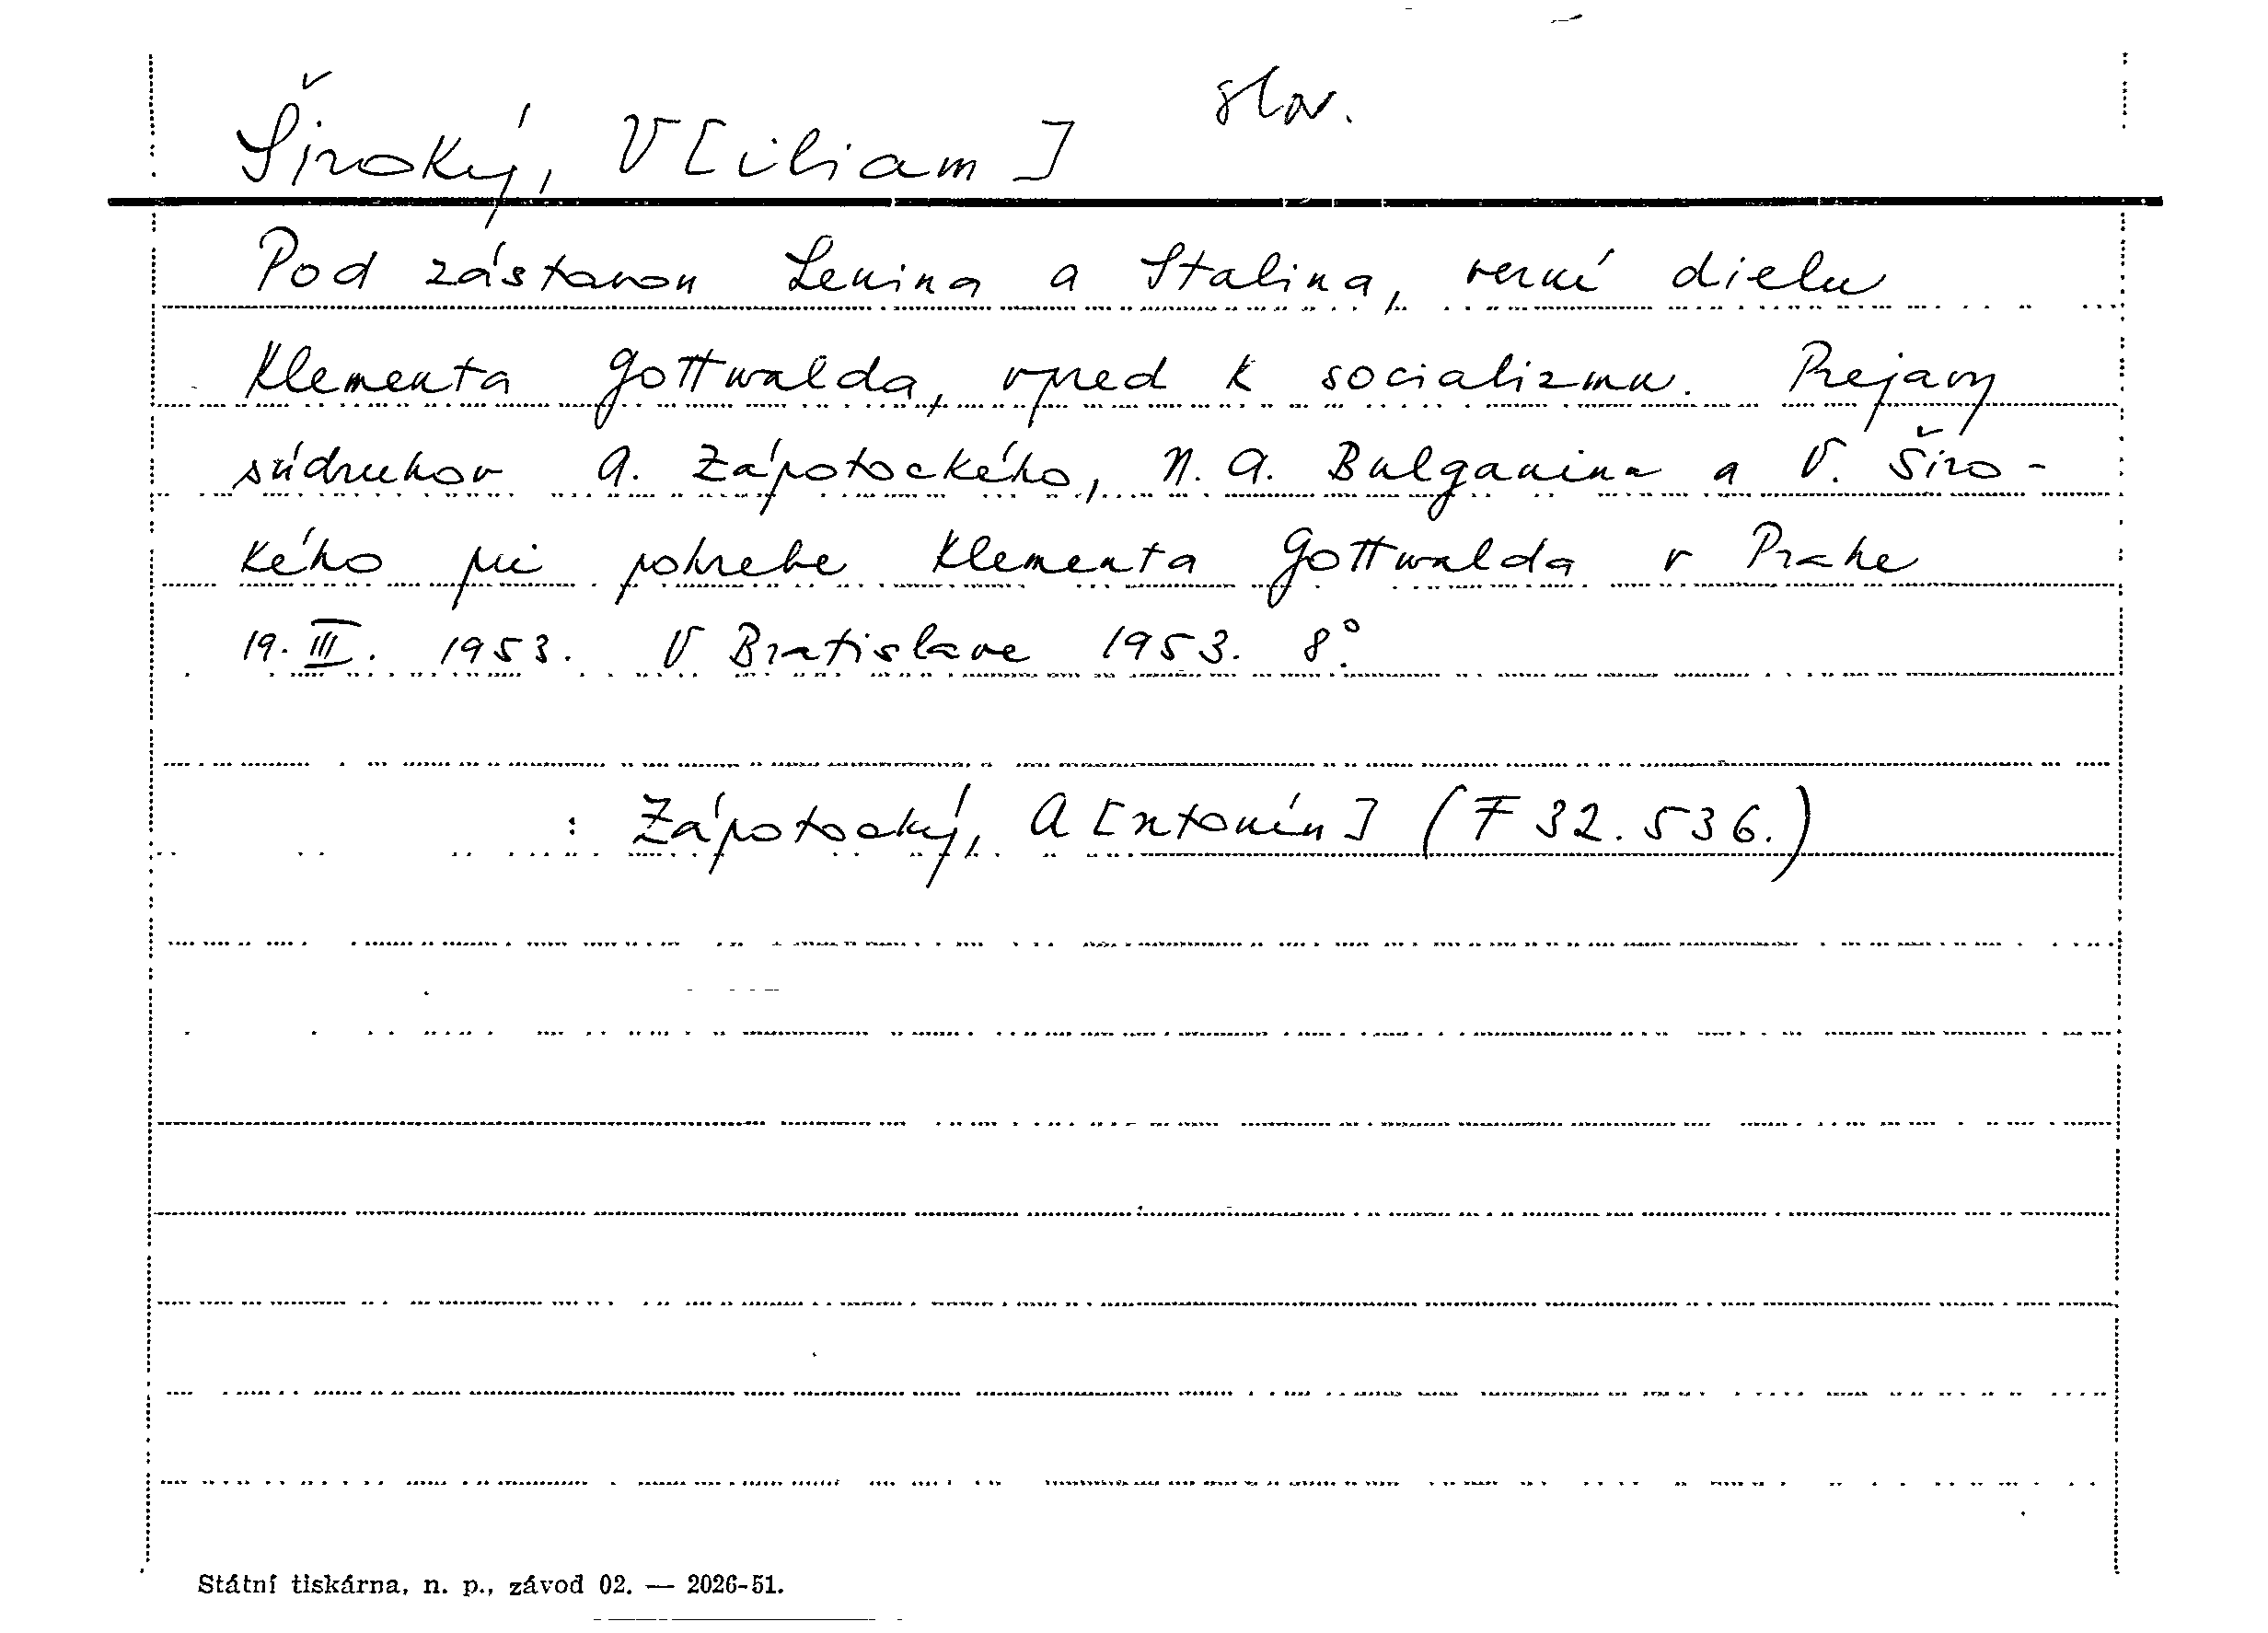 slov.
Široký, V[iliam]
Pod zástavou Lenina a Stalina, verní dielu
Klementa Gottwalda, vpred k socializmu. Prejavy
súdruhov A. Zápotockého, N. A. Bulganina a V. Širo-
kého pri pohrebe Klementa Gottwalda v Prahe
19. III. 1953. V Bratislave 1953. 8°.
: Zápotocký, A[ntonín] (F 32.536.)
Státní tiskárna, n. p., závod 02. — 2026-51.